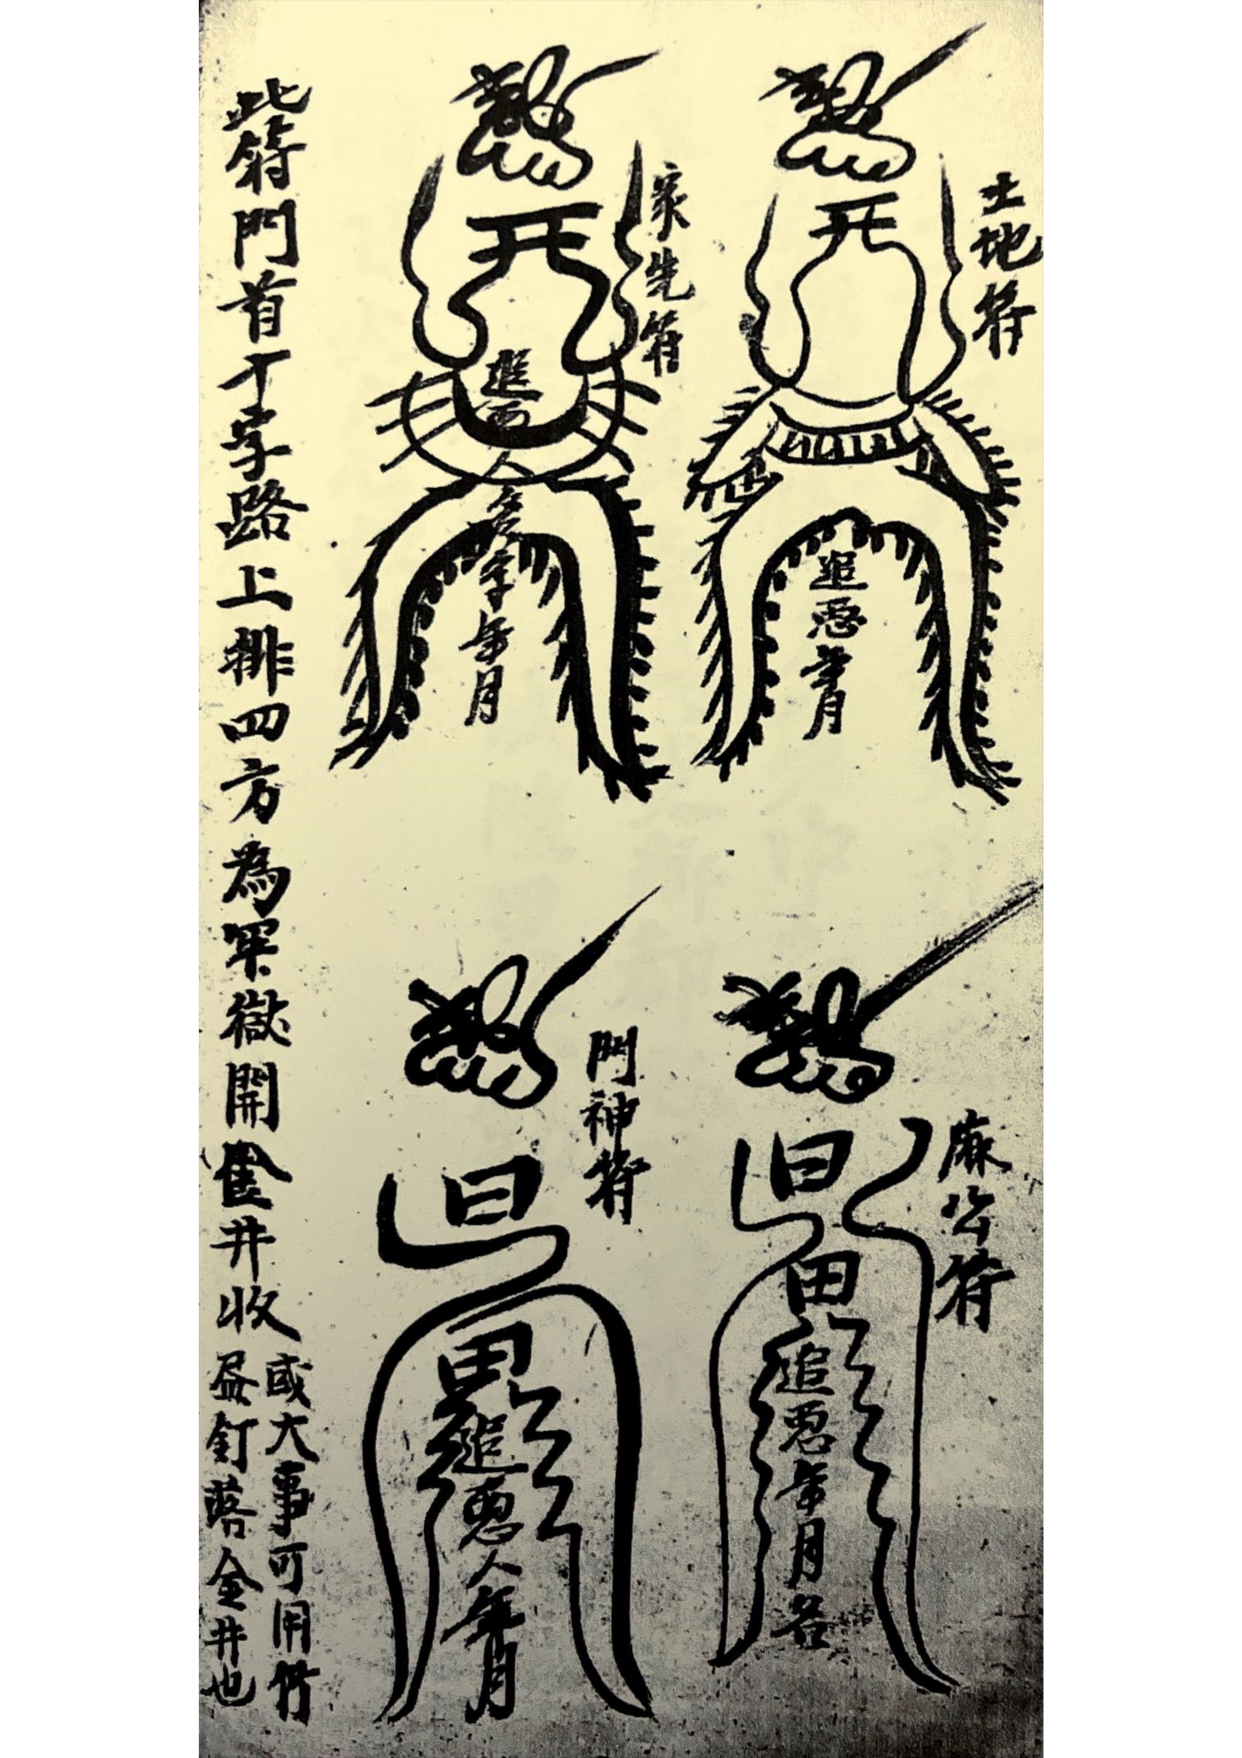 土地符
追惡年月
家先符
追惡人名字年月
麻公符
日
田
追惡年月名
門神符
日
田
追惡人年月
此符門首十字路上排四方為罕獄開金井收
或大事可用符
昼釘落金井也